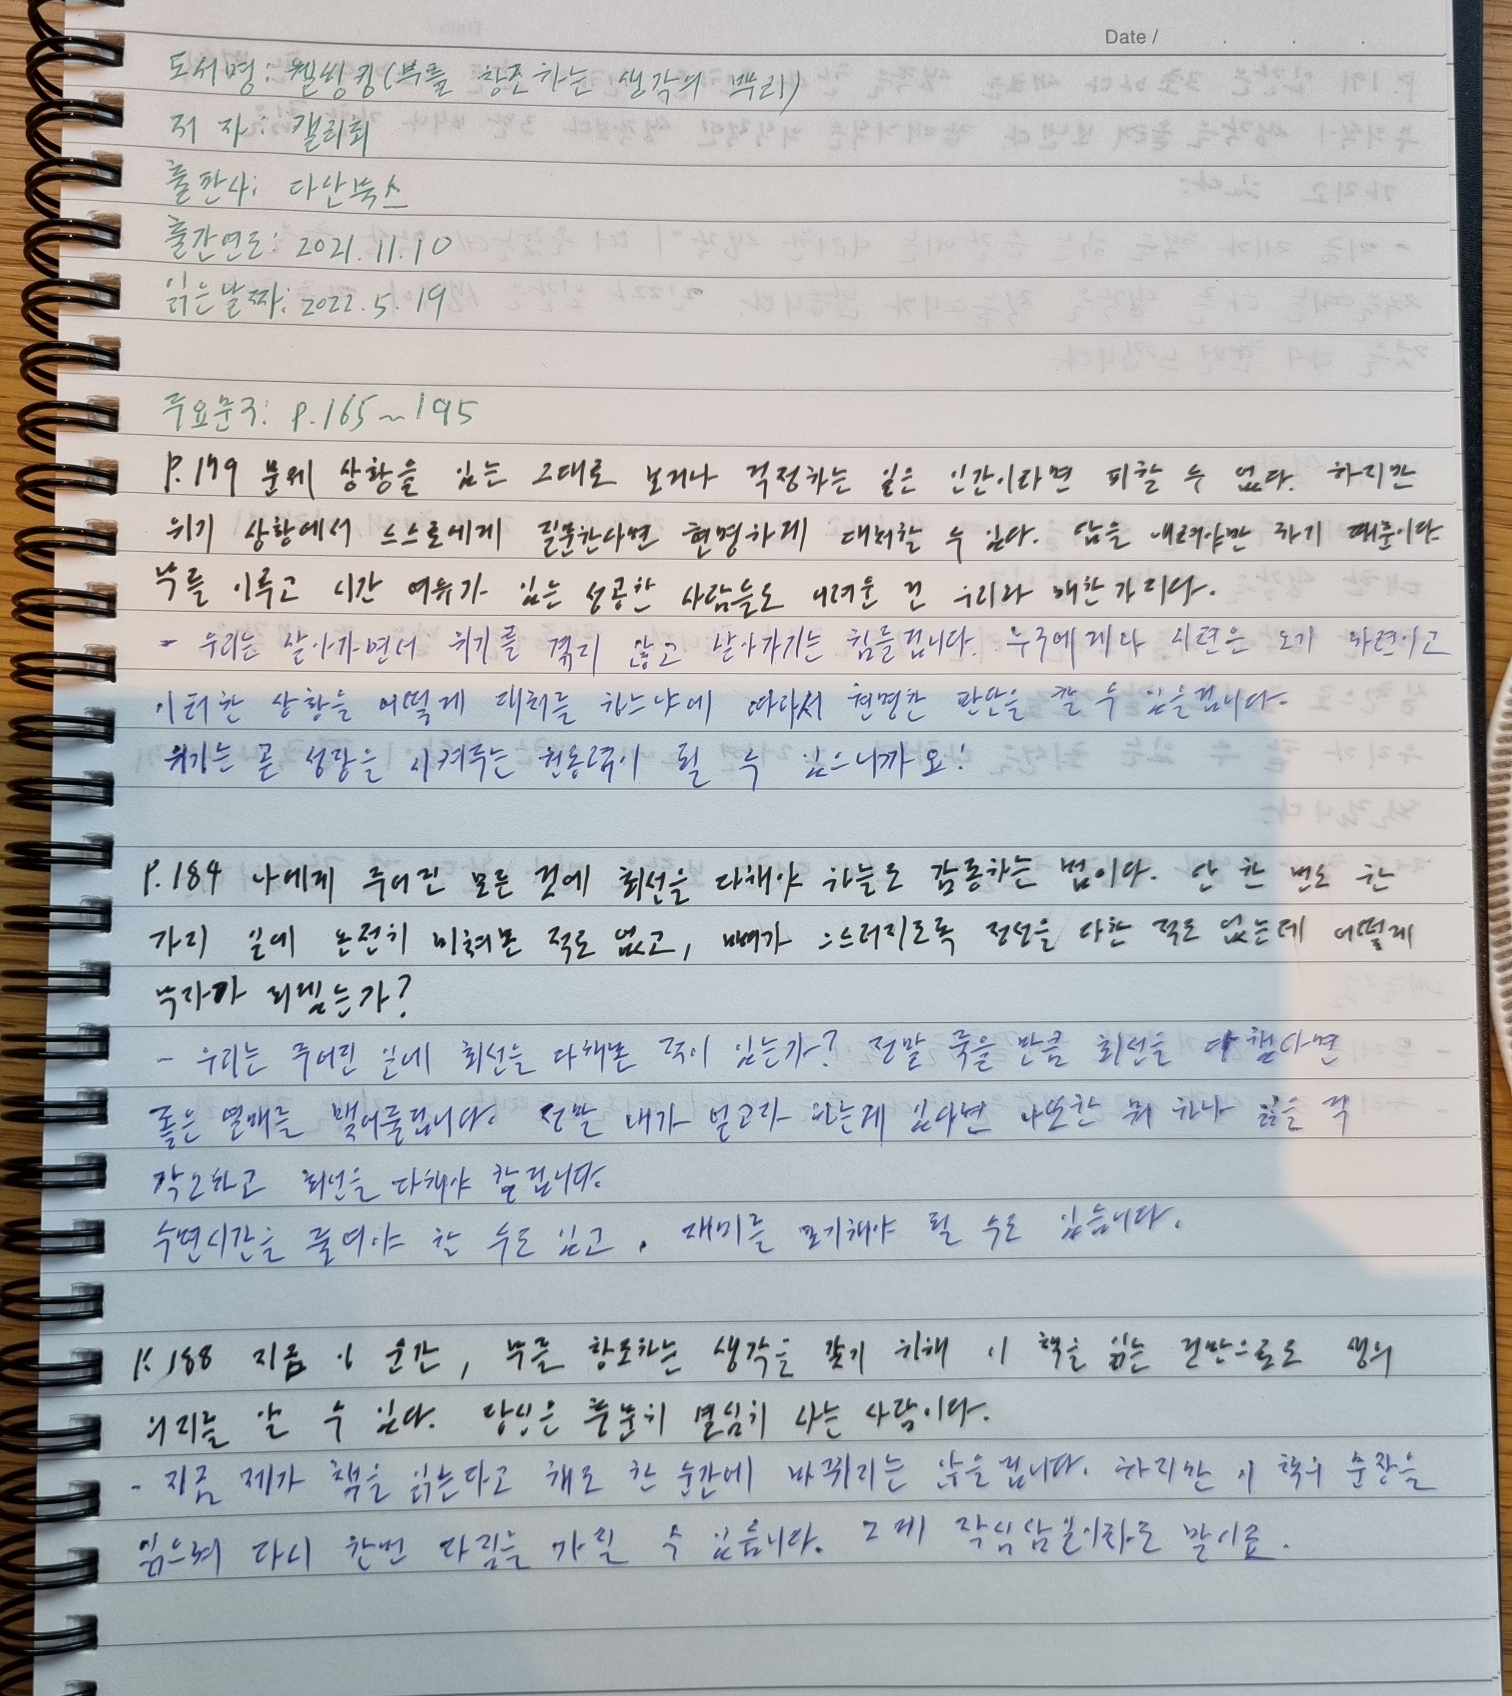 Date / . . .
도서명: 웰씽킹(부를 창조하는 생각의 뿌리)
저 자: 켈리최
출판사: 다산북스
출간연도: 2021.11.10
읽은날짜: 2022.5.19
주요문구: P.165~195
P.179 문제 상황을 있는 그대로 보거나 걱정하는 일은 인간이라면 피할 수 없다. 하지만
위기 상황에서 스스로에게 질문한다면 현명하게 대처할 수 있다. 답을 내려야만 하기 때문이다
부를 이루고 시간 여유가 있는 성공한 사람들도 어려운 건 우리와 매한가지다.
- 우리는 살아가면서 위기를 겪지 않고 살아가기는 힘들겁니다. 누구에게나 시련은 오기 마련이고
이러한 상황을 어떻게 대처를 하느냐에 따라서 현명한 판단을 할 수 있을겁니다.
위기는 곧 성장을 시켜주는 원동력이 될 수 있으니까요!
P.184 나에게 주어진 모든 것에 최선을 다해야 하늘도 감동하는 법이다. 단 한 번도 한
가지 일에 온전히 미쳐본 적도 없고, 뼈가 으스러지도록 정성을 다한 적도 없는데 어떻게
부자가 되겠는가?
- 우리는 주어진 일에 최선을 다해본 적이 있는가? 정말 죽을 만큼 최선을 다했다면
좋은 열매를 맺어줄겁니다. 정말 내가 얻고자 하는게 있다면 나또한 뭐 하나 잃을 각
각오하고 최선을 다해야 할겁니다.
수면시간을 줄여야 할 수도 있고, 재미를 포기해야 될 수도 있습니다.
P.188 지금 이 순간, 부를 창조하는 생각을 갖기 위해 이 책을 읽는 것만으로도 생의
의지를 알 수 있다. 당신은 충분히 열심히 사는 사람이다.
- 지금 제가 책을 읽는다고 해도 한 순간에 바뀌지는 않을겁니다. 하지만 이 책의 문장을
읽으며 다시 한번 다짐을 가질 수 있습니다. 그게 작심삼일이라도 말이죠.